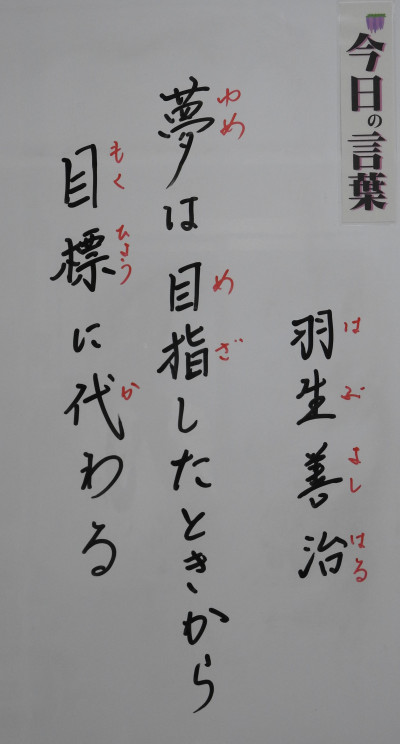 今日の言葉
羽生善治
はぶよしはる
夢は目指したときから
ゆめめざ
目標に代わる
もくひょうか